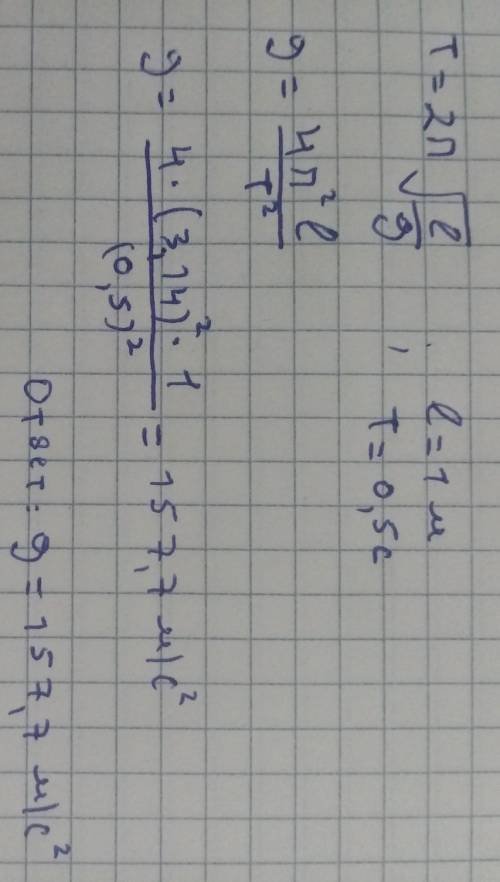 T = 2π √(l/g) , l = 1 м
T = 0,5с
g = 4π² l / T²
g = 4 · (3,14)² · 1 / (0,5)² = 157,7 м/с²
Ответ: g = 157,7 м/с²